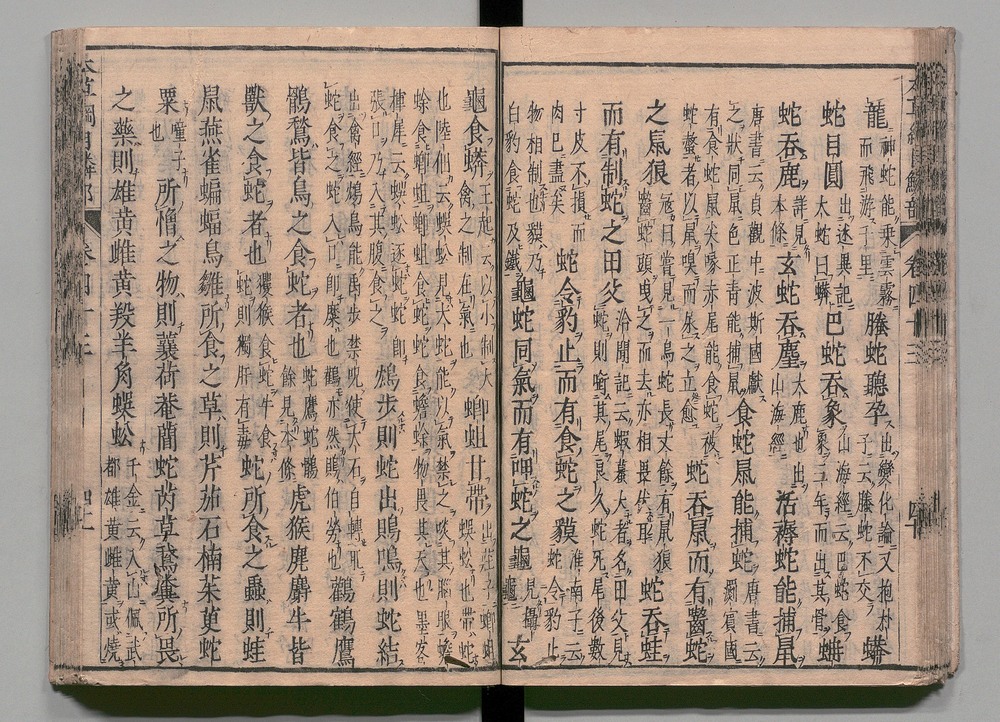 龍神蛇能乘雲霧而飛游千里螣蛇聽孕出變化論又抱朴子云螣蛇不交蟒
蛇目圓出述異記大蛇曰蟒巴蛇吞象山海經云巴蛇食象三年而出其骨蚺
蛇吞鹿詳見本條玄蛇吞塵大鹿也出山海經活褥蛇能捕鼠
唐書云貞觀中波斯國獻之狀同鼠色正青能捕鼠食蛇鼠能捕蛇唐書云罽賓國
有食蛇鼠尖喙赤尾能食蛇被蛇螫者以鼠嗅而尿之立愈蛇吞鼠而有齧蛇
之鼠狼寇曰嘗見一烏蛇長丈餘有鼠狼齧蛇頭曳之而去亦相畏伏耳蛇吞蛙
而有制蛇之田父洽聞記云蝦蟇大者名田父見蛇則銜其尾良久蛇死尾後數
寸皮不損而肉已盡矣蛇令豹止而有食蛇之貘淮南子云蛇令豹止
物相制也貘乃白豹食蛇及鐵龜蛇同氣而有呷蛇之龜見攝龜玄
龜食蟒王起云以小制大禽之制在氣也蝍蛆甘帶出莊子蝍蛆蜈蚣也帶蛇
也陸佃云蜈蚣見大蛇能以氣禁之啖其腦眼蟾蜍食蝍蛆蝍蛆食蛇蛇食蟾蜍物畏其天也墨客
揮犀云蜈蚣逐蛇蛇即張口乃入其腹食之鴆步則蛇出鵙鳴則蛇結
出禽經鴆鳥能禹步禁呪使大石自轉取蛇食之蛇入口即糜也鵙亦然鵙伯勞也鸛鶴鷹
鶻鶖皆鳥之食蛇者也蛇鷹蛇鶻餘見本條虎猴麂麝牛皆
獸之食蛇者也玃猴食蛇牛食蛇則獨肝有毒蛇所食之蟲則蛙
鼠燕雀蝙蝠鳥雛所食之草則芹茄石楠茱萸蛇
粟蛇所憎之物則蘘荷菴蕳蛇芮草鵞糞所畏
之藥則雄黃雌黃羖羊角蜈蚣千金云入山佩武都雄黃雌黃或燒
卷四十三